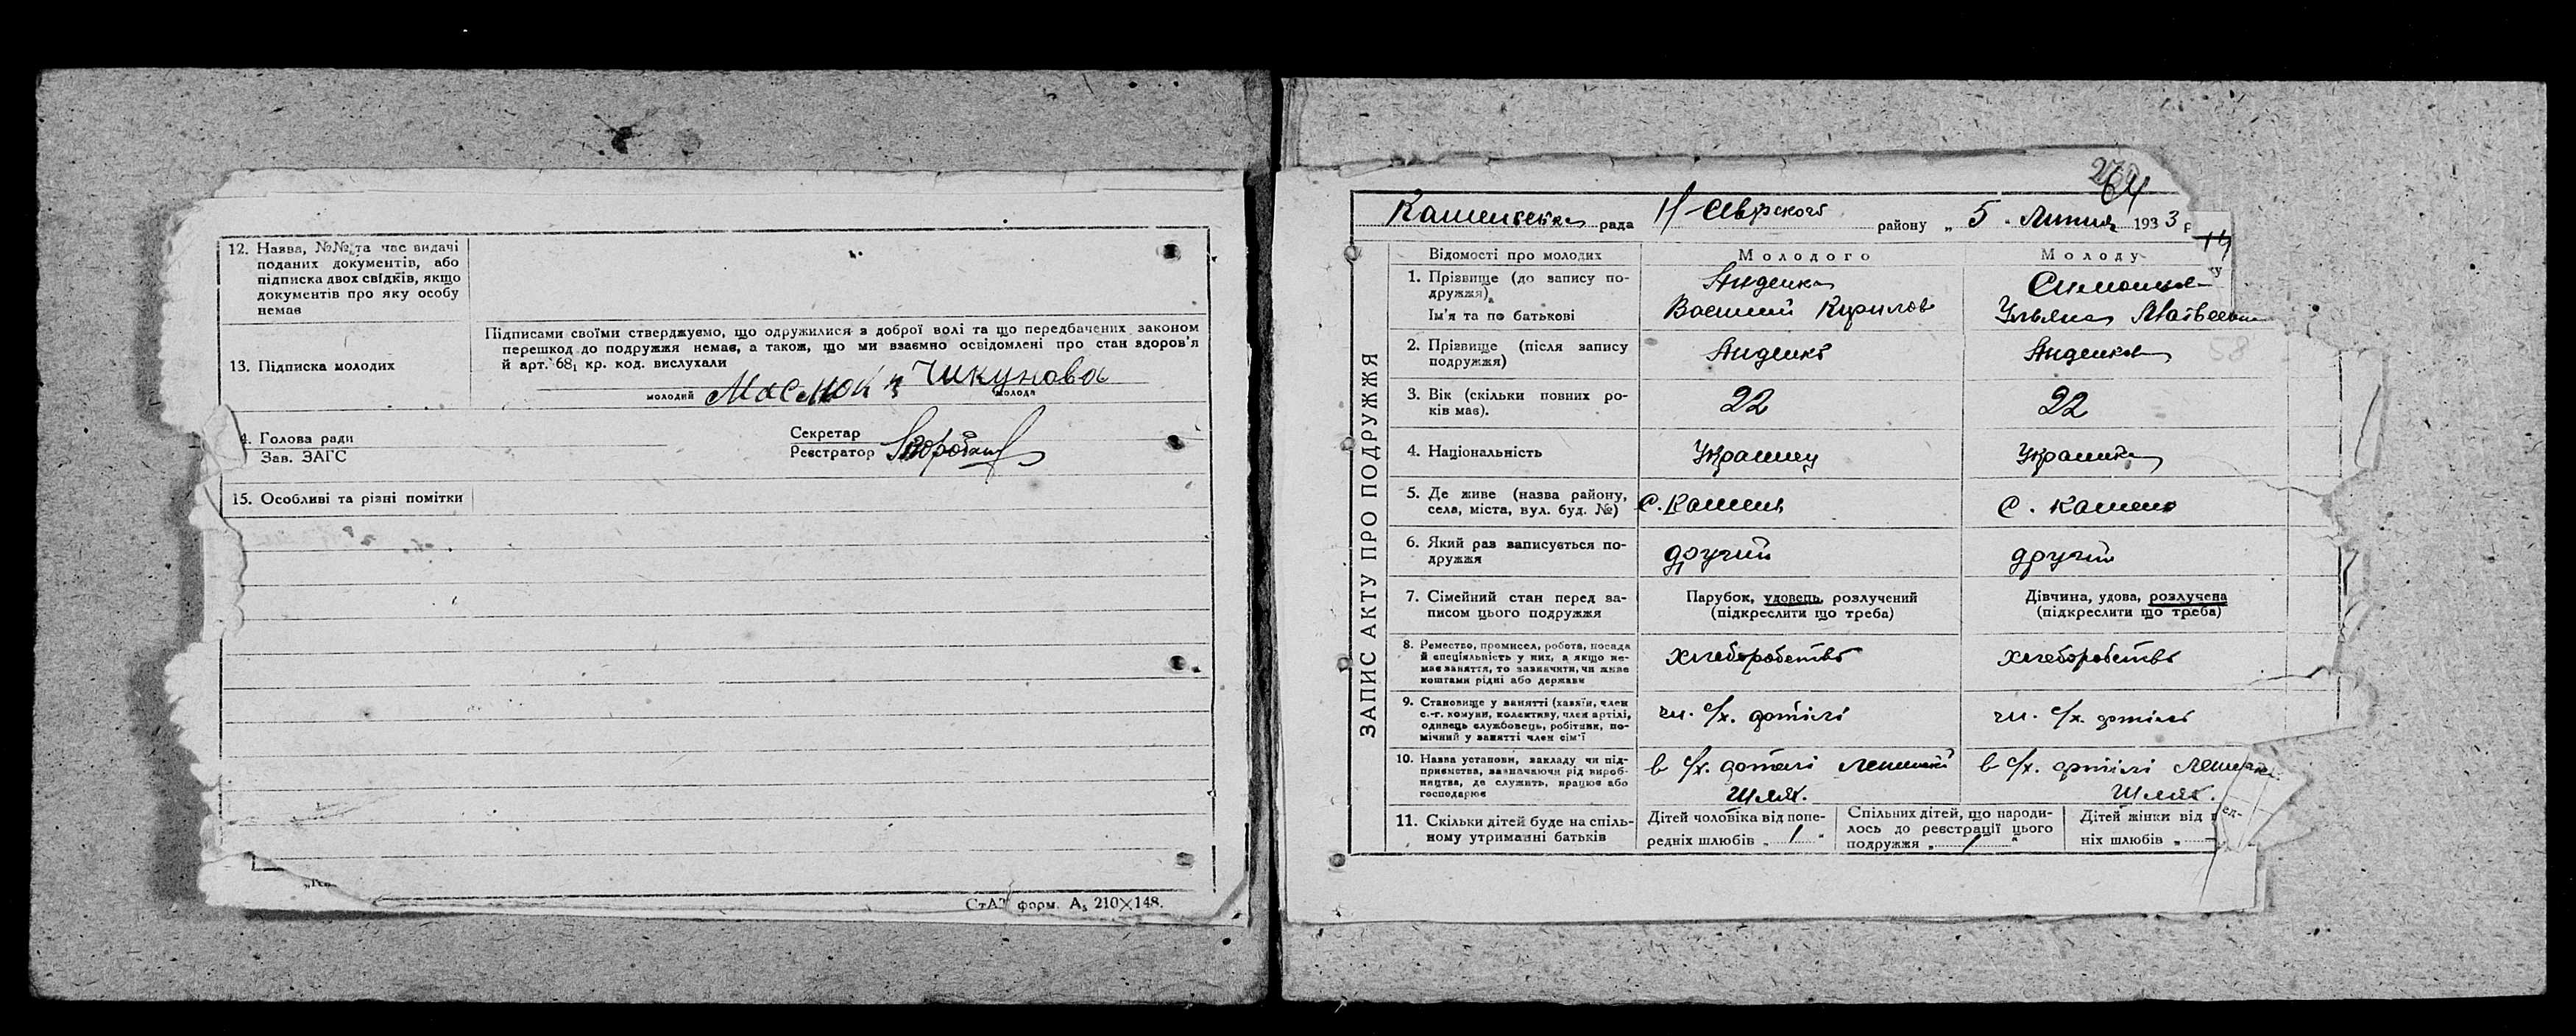 12. Назва, №№ та час видачі
поданих документів, або
підписка двох свідків, якщо
документів про яку особу
немає
13. Підписка молодих
Підписами своїми стверджуємо, що одружилися з доброї волі та що передбачених законом
перешкод до подружжя немає, а також, що ми взаємно освідомлені про стан здоров'я
й арт. 68₁ кр. код. вислухали
молодий
Чикунова
молода
4. Голова ради
Зав. ЗАГС
Секретар
Реєстратор
15. Особливі та різні помітки
СтАТ форм. А₅ 210×148.
64
рада
району „ 5 " Липня 1933 р
14
ЗАПИС АКТУ ПРО ПОДРУЖЖЯ
Відомості про молодих
Молодого
Молоду
1. Прізвище (до запису по-
дружжя),
Ім'я та по батькові
Василий Кирилов
Ульяна Матвеевна
2. Прізвище (після запису
подружжя)
58
3. Вік (скільки повних ро-
ків має).
22
22
4. Національність
Украинец
Украинка
5. Де живе (назва району,
села, міста, вул. буд. №)
с. Камень
с. Камень
6. Який раз записується по-
дружжя
другий
другий
7. Сімейний стан перед за-
писом цього подружжя
Парубок, удовець, розлучений
(підкреслити що треба)
Дівчина, удова, розлучена
(підкреслити що треба)
8. Ремество, промисел, робота, посада
й спеціяльність у них, а якщо не-
має заняття, то зазначити, чи живе
коштами рідні або держави
хлеборобство
хлеборобство
9. Становище у занятті (хазяїн, член
с.-г. комуни, колективу, член артілі,
одинець службовець, робітник, по-
мічний у занятті член сім'ї
чл. с/х. артілі
чл. с/х. артілі
10. Назва установи, закладу чи під-
приємства, зазначаючи рід вироб-
ництва, де служить, працює або
господарює
в с/х. артілі
Шлях.
в с/х. артілі
Шлях.
11. Скільки дітей буде на спіль-
ному утриманні батьків
Дітей чоловіка від попе-
редніх шлюбів „ 1 "
Спільних дітей, що народи-
лось до реєстрації цього
подружжя „ 1 "
Дітей жінки від
ніх шлюбів „